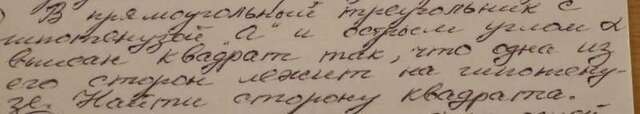 В прямоугольный треугольник с
гипотенузой "а" и острым углом α
вписан квадрат так, что одна из
его сторон лежит на гипотену-
зе. Найти сторону квадрата.